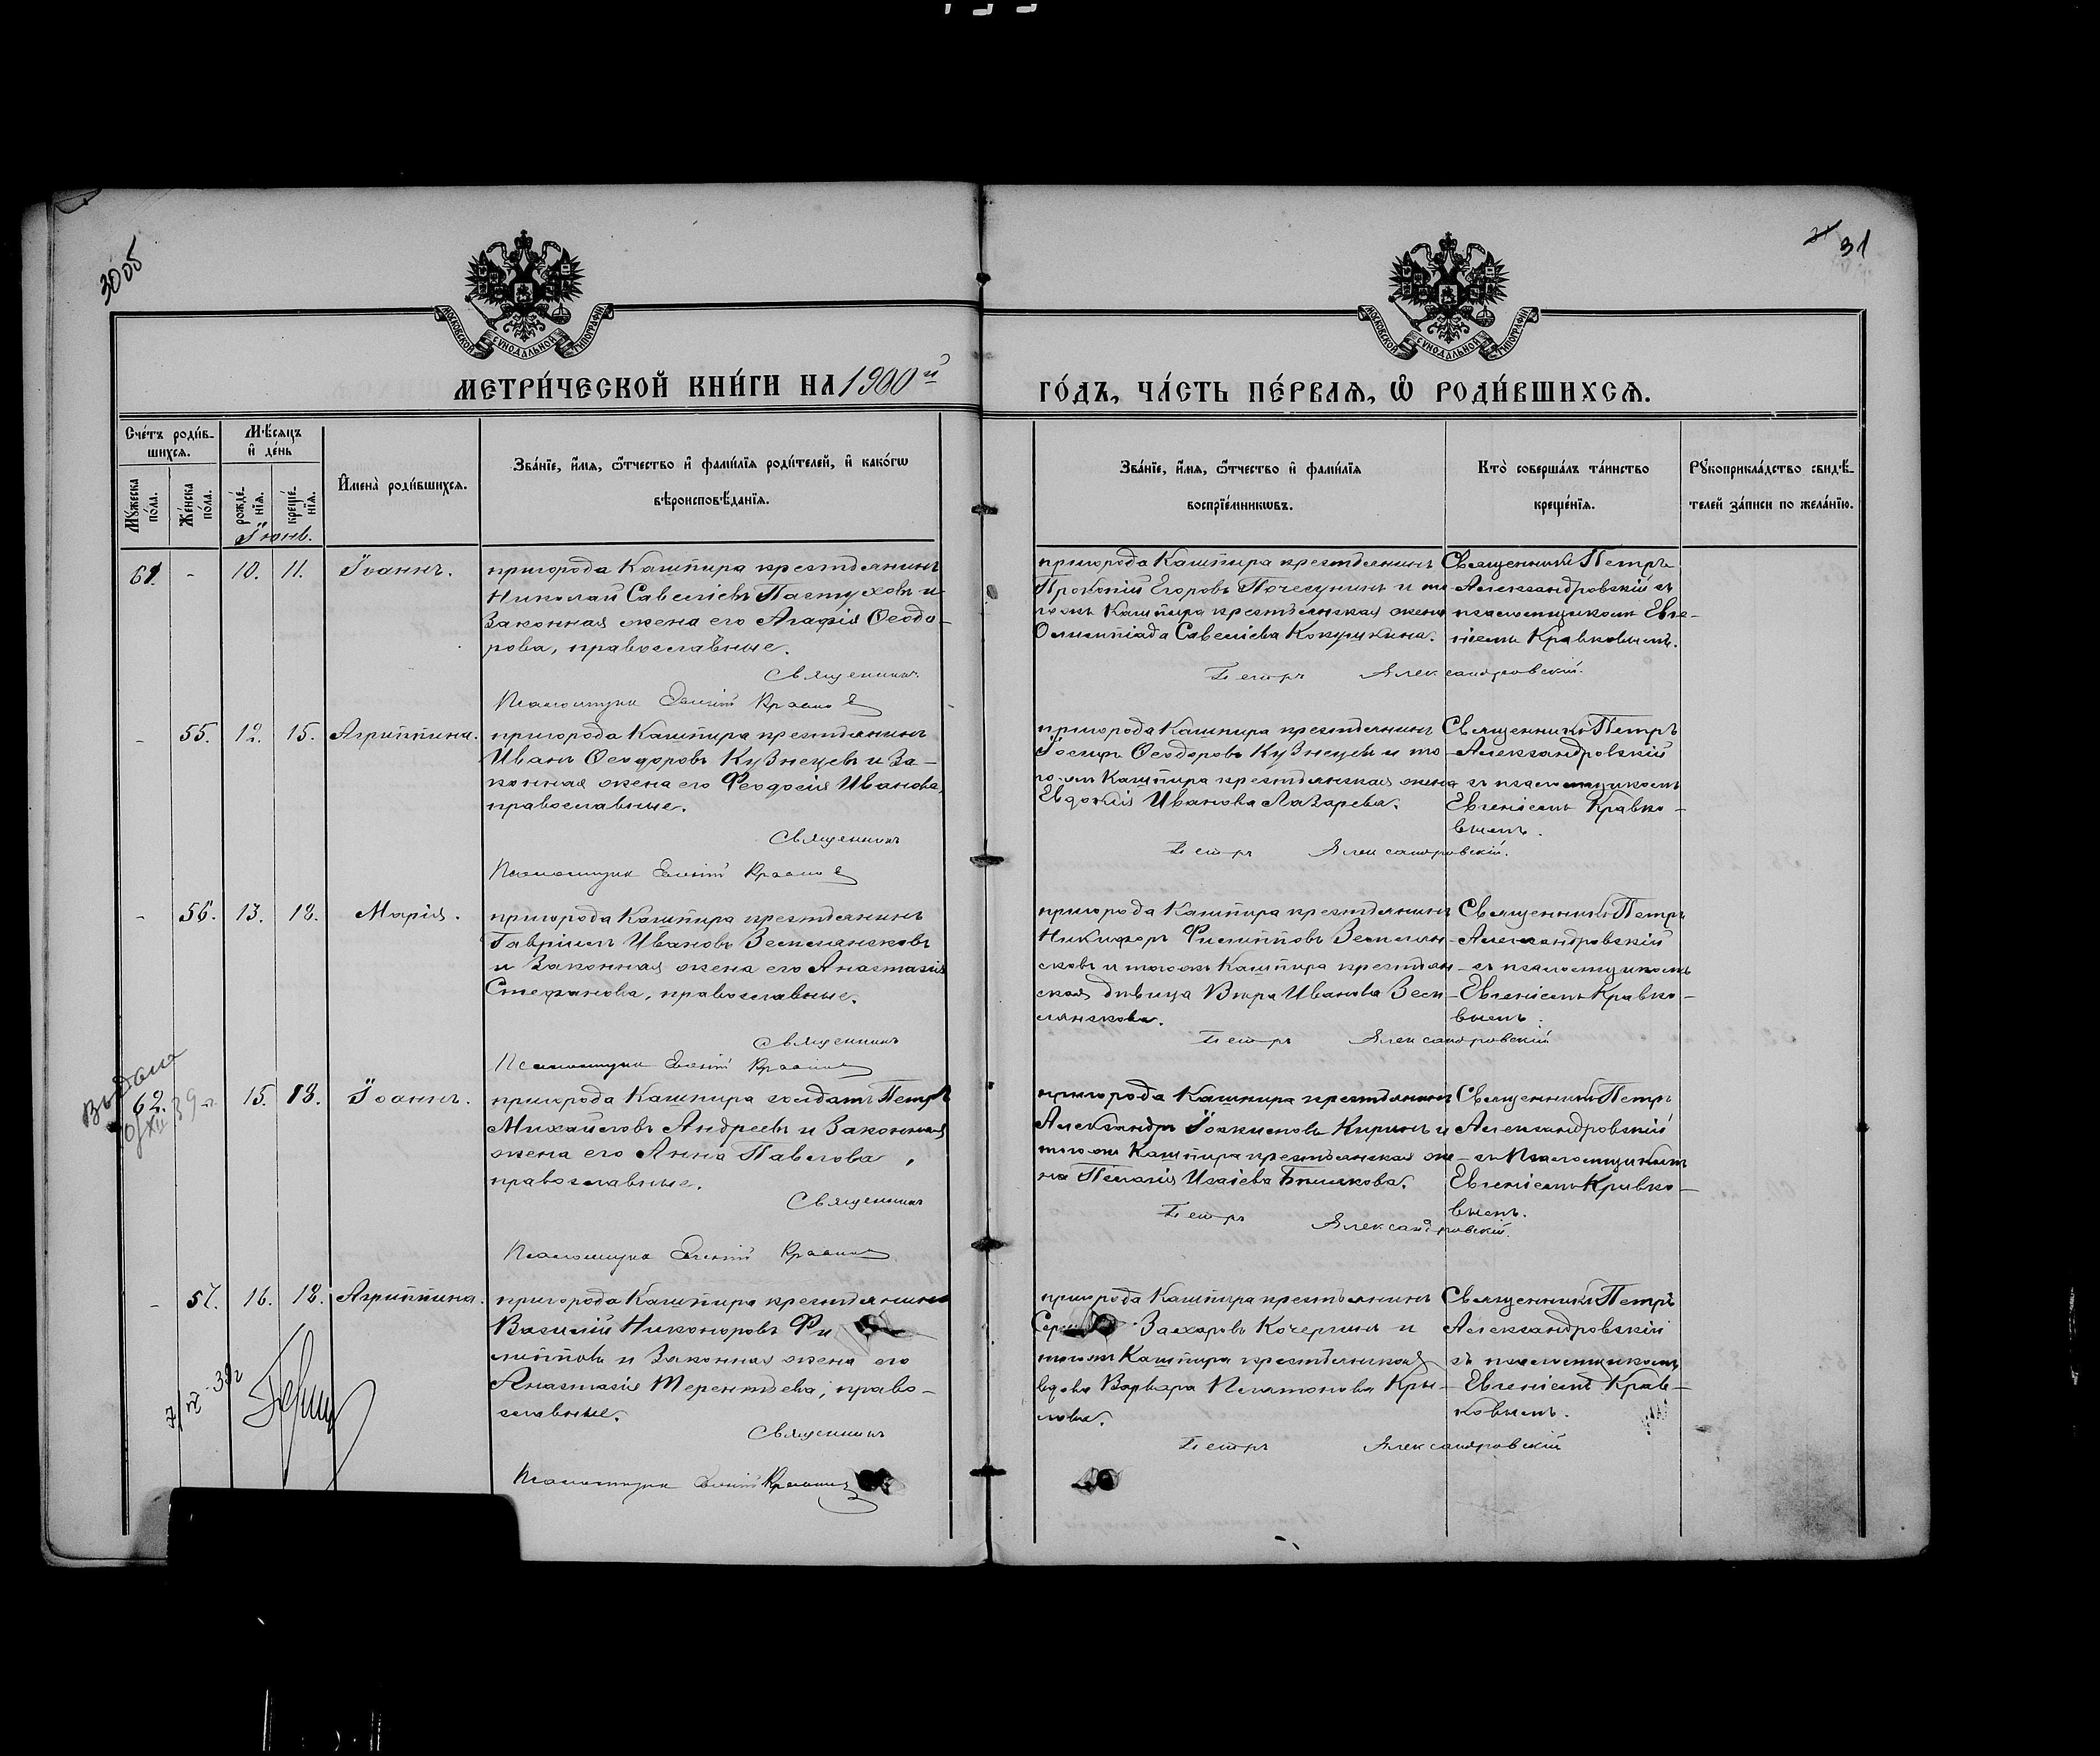 3005
31
МОСКОВСКОЙ СѴНОДАЛЬНОЙ ТИПОГРАФІИ
МОСКОВСКОЙ СѴНОДАЛЬНОЙ ТИПОГРАФІИ
МЕТРИ́ЧЕСКОЙ КНИ́ГИ НА 1900й
ГО́ДЪ, ЧА́СТЬ ПЕ́РВАѦ, Ѡ҆ РОДИ́ВШИХСѦ.
Сче́тъ роди́в-
шихсѧ.
Мꙋжеска по́ла.
Же́нска по́ла.
Мѣ́сѧцъ
и҆ де́нь
рожде́-
нїѧ.
креще́-
нїѧ.
Іюнь.
И҆мена̀ роди́вшихсѧ.
Зва́нїе, и҆́мѧ, ѻ҆́тчество и҆ фами́лїѧ роди́телей, и҆ како́гѡ
вѣроисповѣ́данїѧ.
Зва́нїе, и҆́мѧ, ѻ҆́тчество и҆ фами́лїѧ
воспрїе́мникѡвъ.
Кто̀ соверша́лъ та́инство
креще́нїѧ.
Рꙋкоприкла́дство свидѣ́-
телей за́писи по жела́нїю.
61. - 10. 11. Іоаннъ.
пригорода Кашпира крестьянинъ
Николай Савеліевъ Пастуховъ и
законная жена его Агафія Ѳеодо-
рова, православные.
Священникъ
Псаломщик Евгеній Кравков
пригорода Кашпира крестьянинъ
Прокопій Егоровъ Почекунинъ и то
гожъ Кашпира крестьянская жена
Олимпіада Савеліева Кокушкина.
Петръ Александровскій.
Священникъ Петръ
Александровскій съ
псаломщикомъ Евге-
ніемъ Кравковымъ.
- 55. 12. 15. Агриппина.
пригорода Кашпира крестьянинъ
Иванъ Ѳеодоровъ Кузнецовъ и за-
конная жена его Феодосія Иванова,
православные.
Священникъ
Псаломщик Евгеній Кравков
пригорода Кашпира крестьянинъ
Іосифъ Ѳеодоровъ Кузнецовъ и то
го-жъ Кашпира крестьянская жена
Евдокія Иванова Лазарева.
Петръ Александровскій.
Священникъ Петръ
Александровскій
съ псаломщикомъ
Евгеніемъ Кравко-
вымъ.
- 56. 13. 18. Марія.
пригорода Кашпира крестьянинъ
Гавріилъ Ивановъ Землянсковъ
и законная жена его Анастасія
Стефанова, православные.
Священникъ
Псаломщик Евгеній Кравков
пригорода Кашпира крестьянинъ
Никифоръ Филипповъ Землян-
сковъ и тогожъ Кашпира крестьян-
ская дѣвица Вѣра Иванова Зем-
лянскова.
Петръ Александровскій
Священникъ Петръ
Александровскій
съ псаломщикомъ
Евгеніемъ Кравко-
вымъ.
62. 15. 18. Іоаннъ.
пригорода Кашпира солдатъ Петръ
Михайловъ Андреевъ и законная
жена его Анна Павлова,
православные.
Священникъ
Псаломщик Евгеній Кравков
пригорода Кашпира крестьянинъ
Александръ Іоакимовъ Киринъ и
тогожъ Кашпира крестьянская же-
на Пелагія Исаіева
Петръ Александровскій.
Священникъ Петръ
Александровскій
съ Псаломщикомъ
Евгеніемъ Кравко-
вымъ.
- 57. 16. 18. Агриппина.
пригорода Кашпира крестьянинъ
Василій Никоноровъ Фи
липповъ и законная жена его
Анастасія Терентьева, право-
славные.
Священникъ
Псаломщик Евгеній Кравков
пригорода Кашпира крестьянинъ
Захаровъ Кочергинъ и
тогожъ Кашпира крестьянская
вдова Варвара Платонова Кры-
лова.
Петръ Александровскій
Священникъ Петръ
Александровскій
съ псаломщикомъ
Евгеніемъ Крав-
ковымъ.